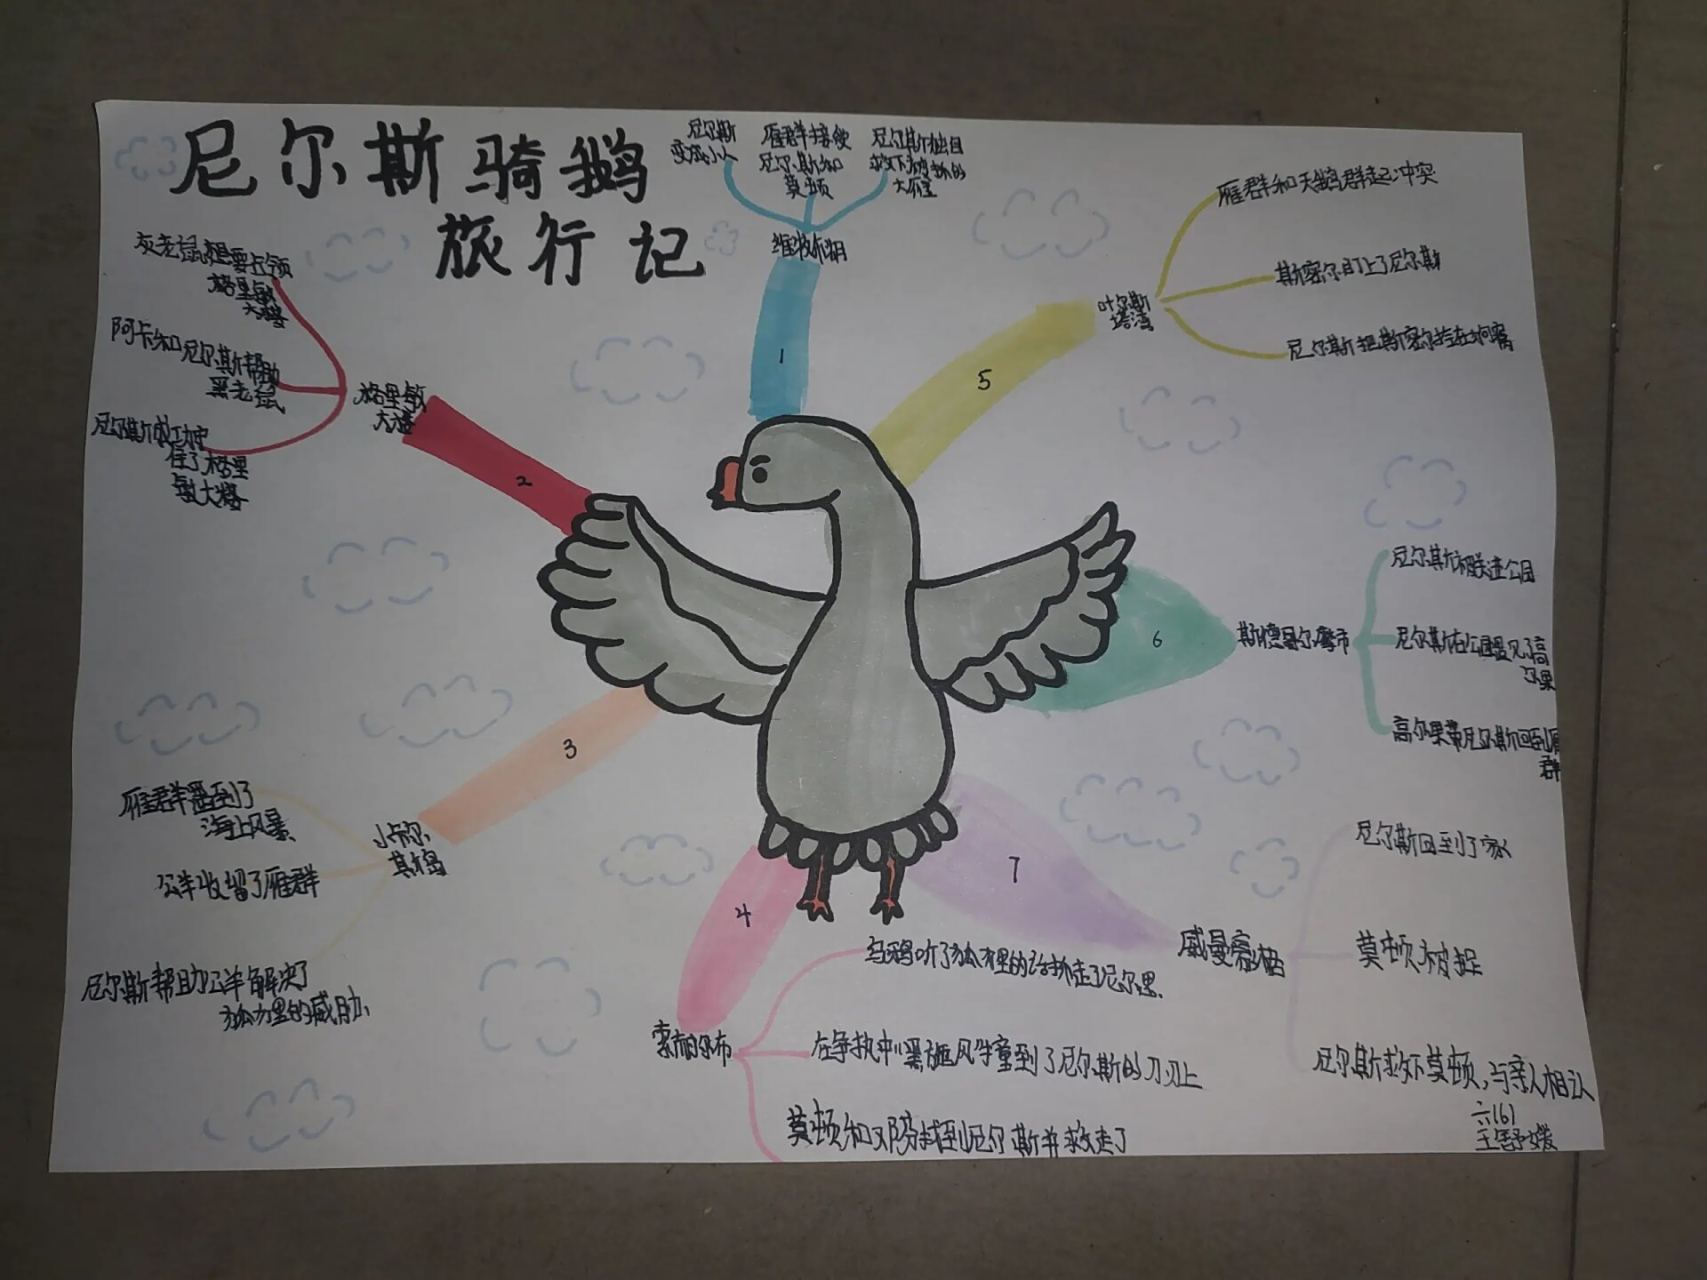 尼尔斯骑鹅
旅行记
尼尔斯
变成小人
雁群接受
尼尔斯和
莫顿
尼尔斯独自
救下被抓的
大雁
1
灰老鼠想要占领
格里敏
大楼
阿卡和尼尔斯帮助
黑老鼠
尼尔斯成功守
住了格里
敏大楼
格里敏
大楼
2
雁群遇到了
海上风暴
公羊收留了雁群
尼尔斯帮助公羊解决了
狐狸的威胁
小卡尔
斯岛
3
4
乌鸦听了狐狸的话抓走了尼尔思
在争执中黑旋风撞到了尼尔斯的刀刃上
莫顿和邓芬找到尼尔斯并救走了
5
雁群和天鹅群起冲突
斯密尔盯上了尼尔斯
尼尔斯把斯密尔拴在狗窝
6
斯德哥尔摩市
尼尔斯被送进公园
尼尔斯在公园遇见了高
尔果
高尔果带尼尔斯回到雁
群
7
威曼豪格
尼尔斯回到了家
莫顿被捉
尼尔斯救下莫顿,与亲人相认
六(6)